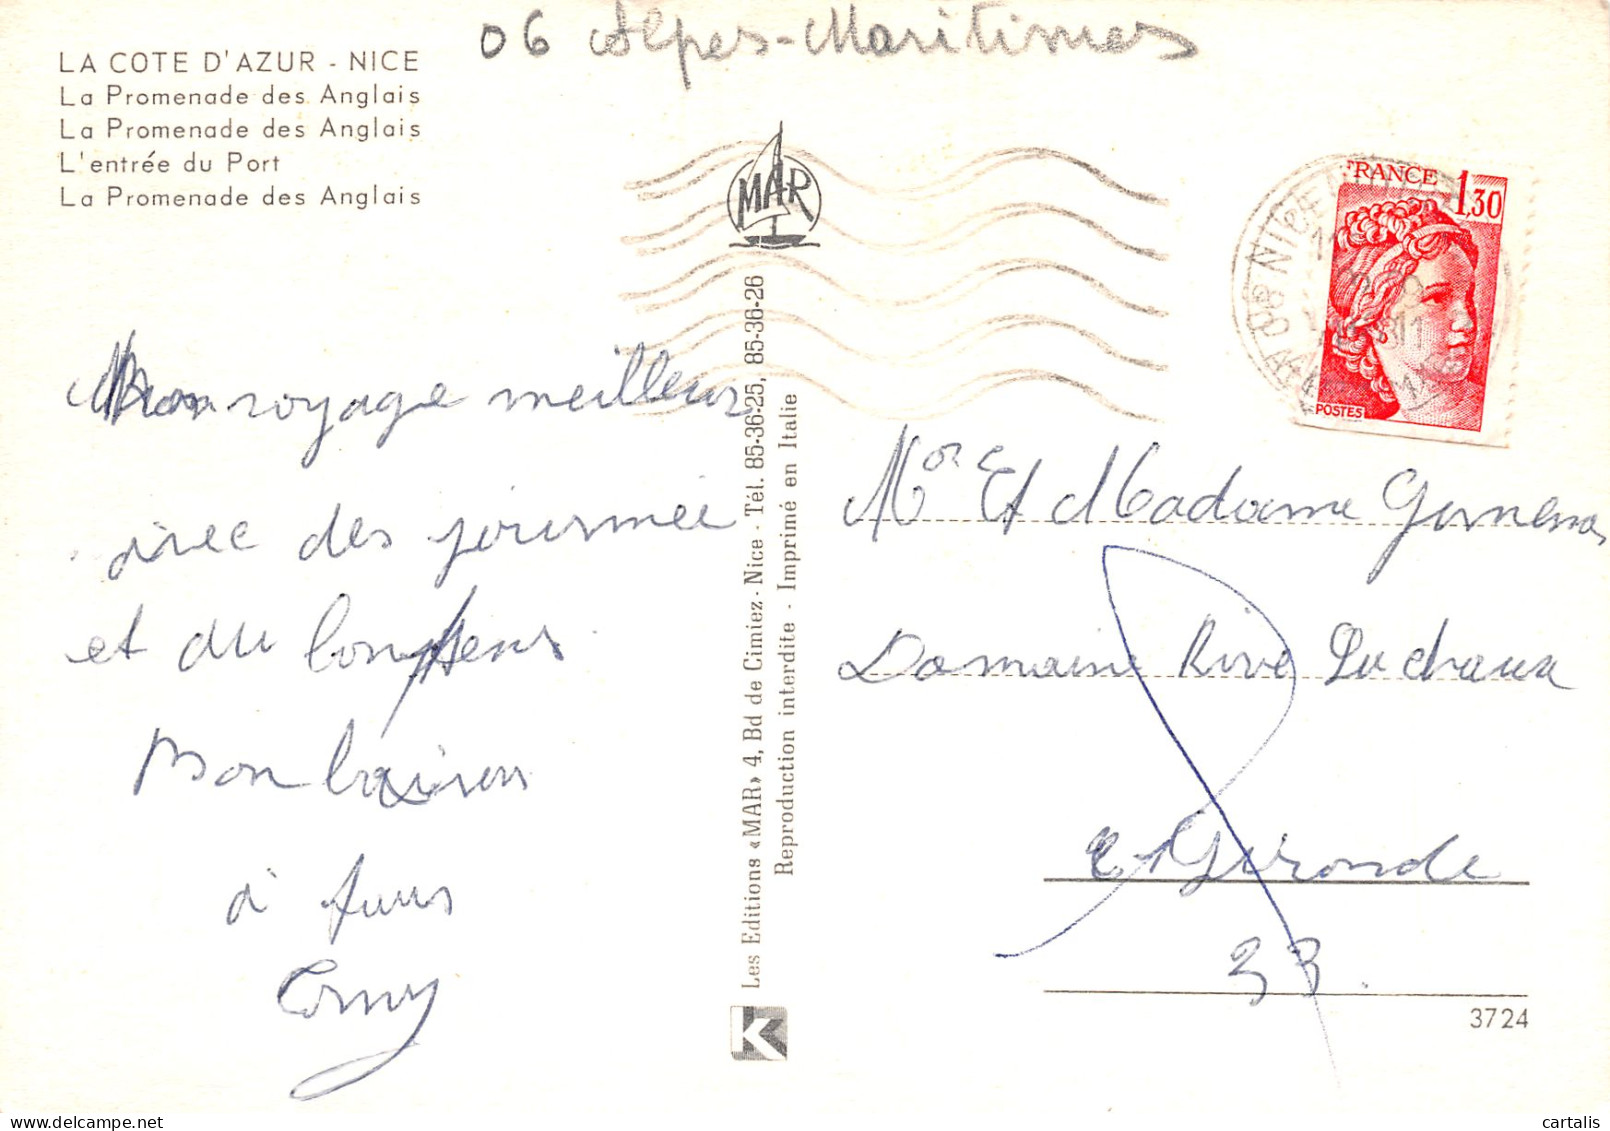 06 Alpes-Maritimes
LA COTE D'AZUR - NICE
La Promenade des Anglais
La Promenade des Anglais
L'entrée du Port
La Promenade des Anglais
MAR
FRANCE 1,30
POSTES
06 NICE
voyage meilleur
avec des journée
et du
Bon
à
Les Editions «MAR» 4, Bd de Cimiez - Nice - Tél. 85-36-25, 85-36-26
Reproduction interdite - Imprimé en Italie
K
Mor Et Madame
Domaine Rive
Gironde
33.
3724
cartalis
delcampe.net